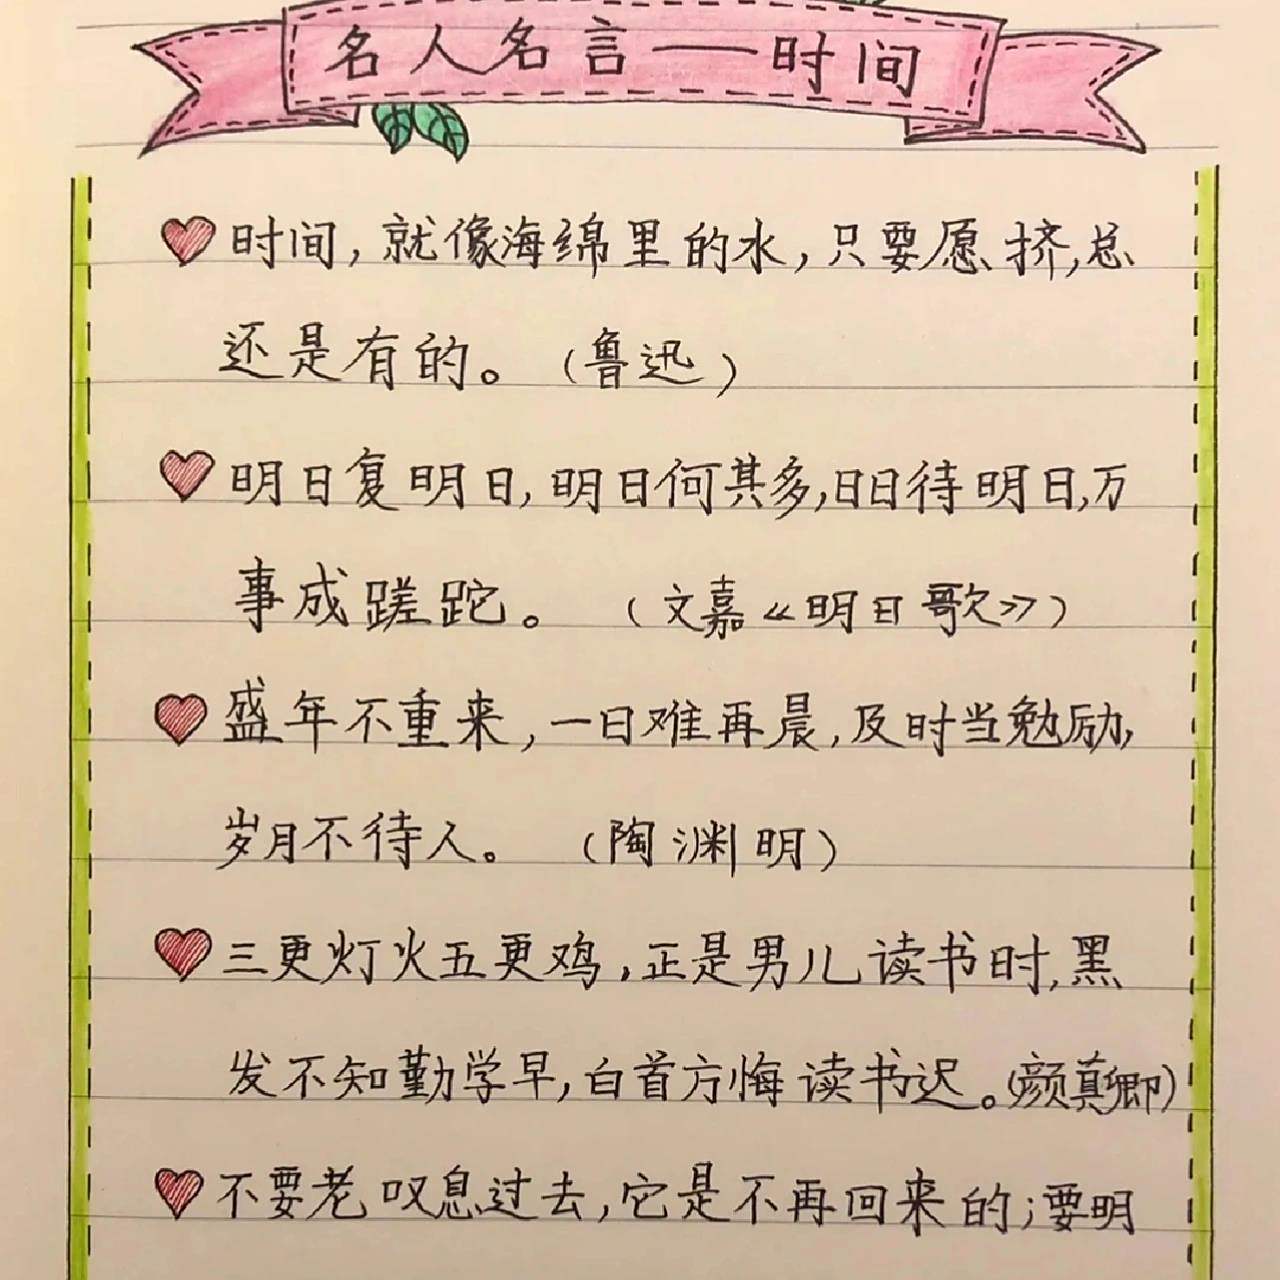 名人名言——时间
时间，就像海绵里的水，只要愿挤，总
还是有的。（鲁迅）
明日复明日，明日何其多，日日待明日，万
事成蹉跎。（文嘉《明日歌》）
盛年不重来，一日难再晨，及时当勉励，
岁月不待人。（陶渊明）
三更灯火五更鸡，正是男儿读书时，黑
发不知勤学早，白首方悔读书迟。（颜真卿）
不要老叹息过去，它是不再回来的；要明